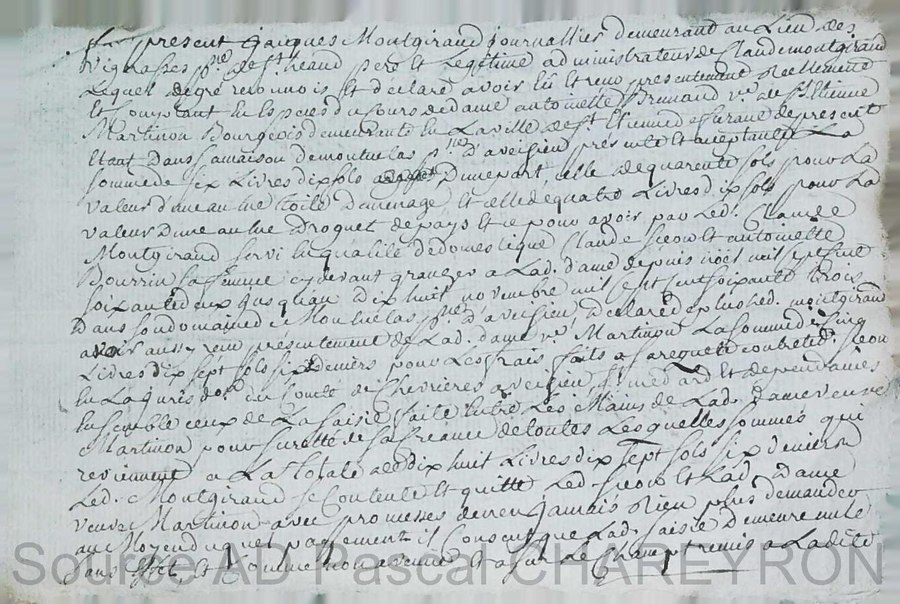 Fut present Jacques Montgirand Journallier demeurant au Lieu des
Viglasses p.sse de St. heand pere et Legitime administrateur de Claude montgirand
Lequel de gré reconnois et declaré avoir Eü et recu presentement reellement
Et Comptant En Especes du Cours de dame antoinette Brunand v.e de St Etienne
Martinon Bourgeois demeurante En La ville de St. Etienne de present
Etant Dans sa maison de montuclas p.sse d'aveisieu presente et aceptante La
somme de six Livres dix sols D'une part celle de quarente sols pour La
valeur d'une aulne toile Demenage et celle de quatre Livres dix sols pour La
valeur D'une aulne Droguet de pays et ce pour avoir par Led. Claude
Montgirand servi En qualité de domestique Claude et antoinette
Bourrin sa femme cydevant granger a Lad. dame depuis noel mil sept cent
soixante deux Jusqu'au Dix huit novembre mil sept Cent soixante trois
Dans son domaine de Montuclas p.sse d'aveisieu Declare de plus Led. montgirand
avoir aussy recu presentement de Lad. dame v.e Martinon La somme de Cinq
Livres dix sept sols six deniers pour Les frais faits a sa requete Contre Led.
En La Jurisd.on du Comté de Chevrières aveisieu St. medard et dependances
Ensemble ceux de La saisie faite Entre Les Mains de Lad. dame veuve
Martinon pour suretté de sa Creance de toutes Lesquelles sommes qui
reviennent a La totale de dix huit Livres dix sept sols six deniers
Led. Montgirand se Contente et quitte Led. et Lad. Dame
veuve Martinon avec promesses de n'en Jamais Rien plus demander
au Moyen duquel payement il Consent que Lad. saisie demeure nulle
sans Effet et Comme non avenue et a sur Le Champ remis a Ladite
Source AD Pascal CHAREYRON